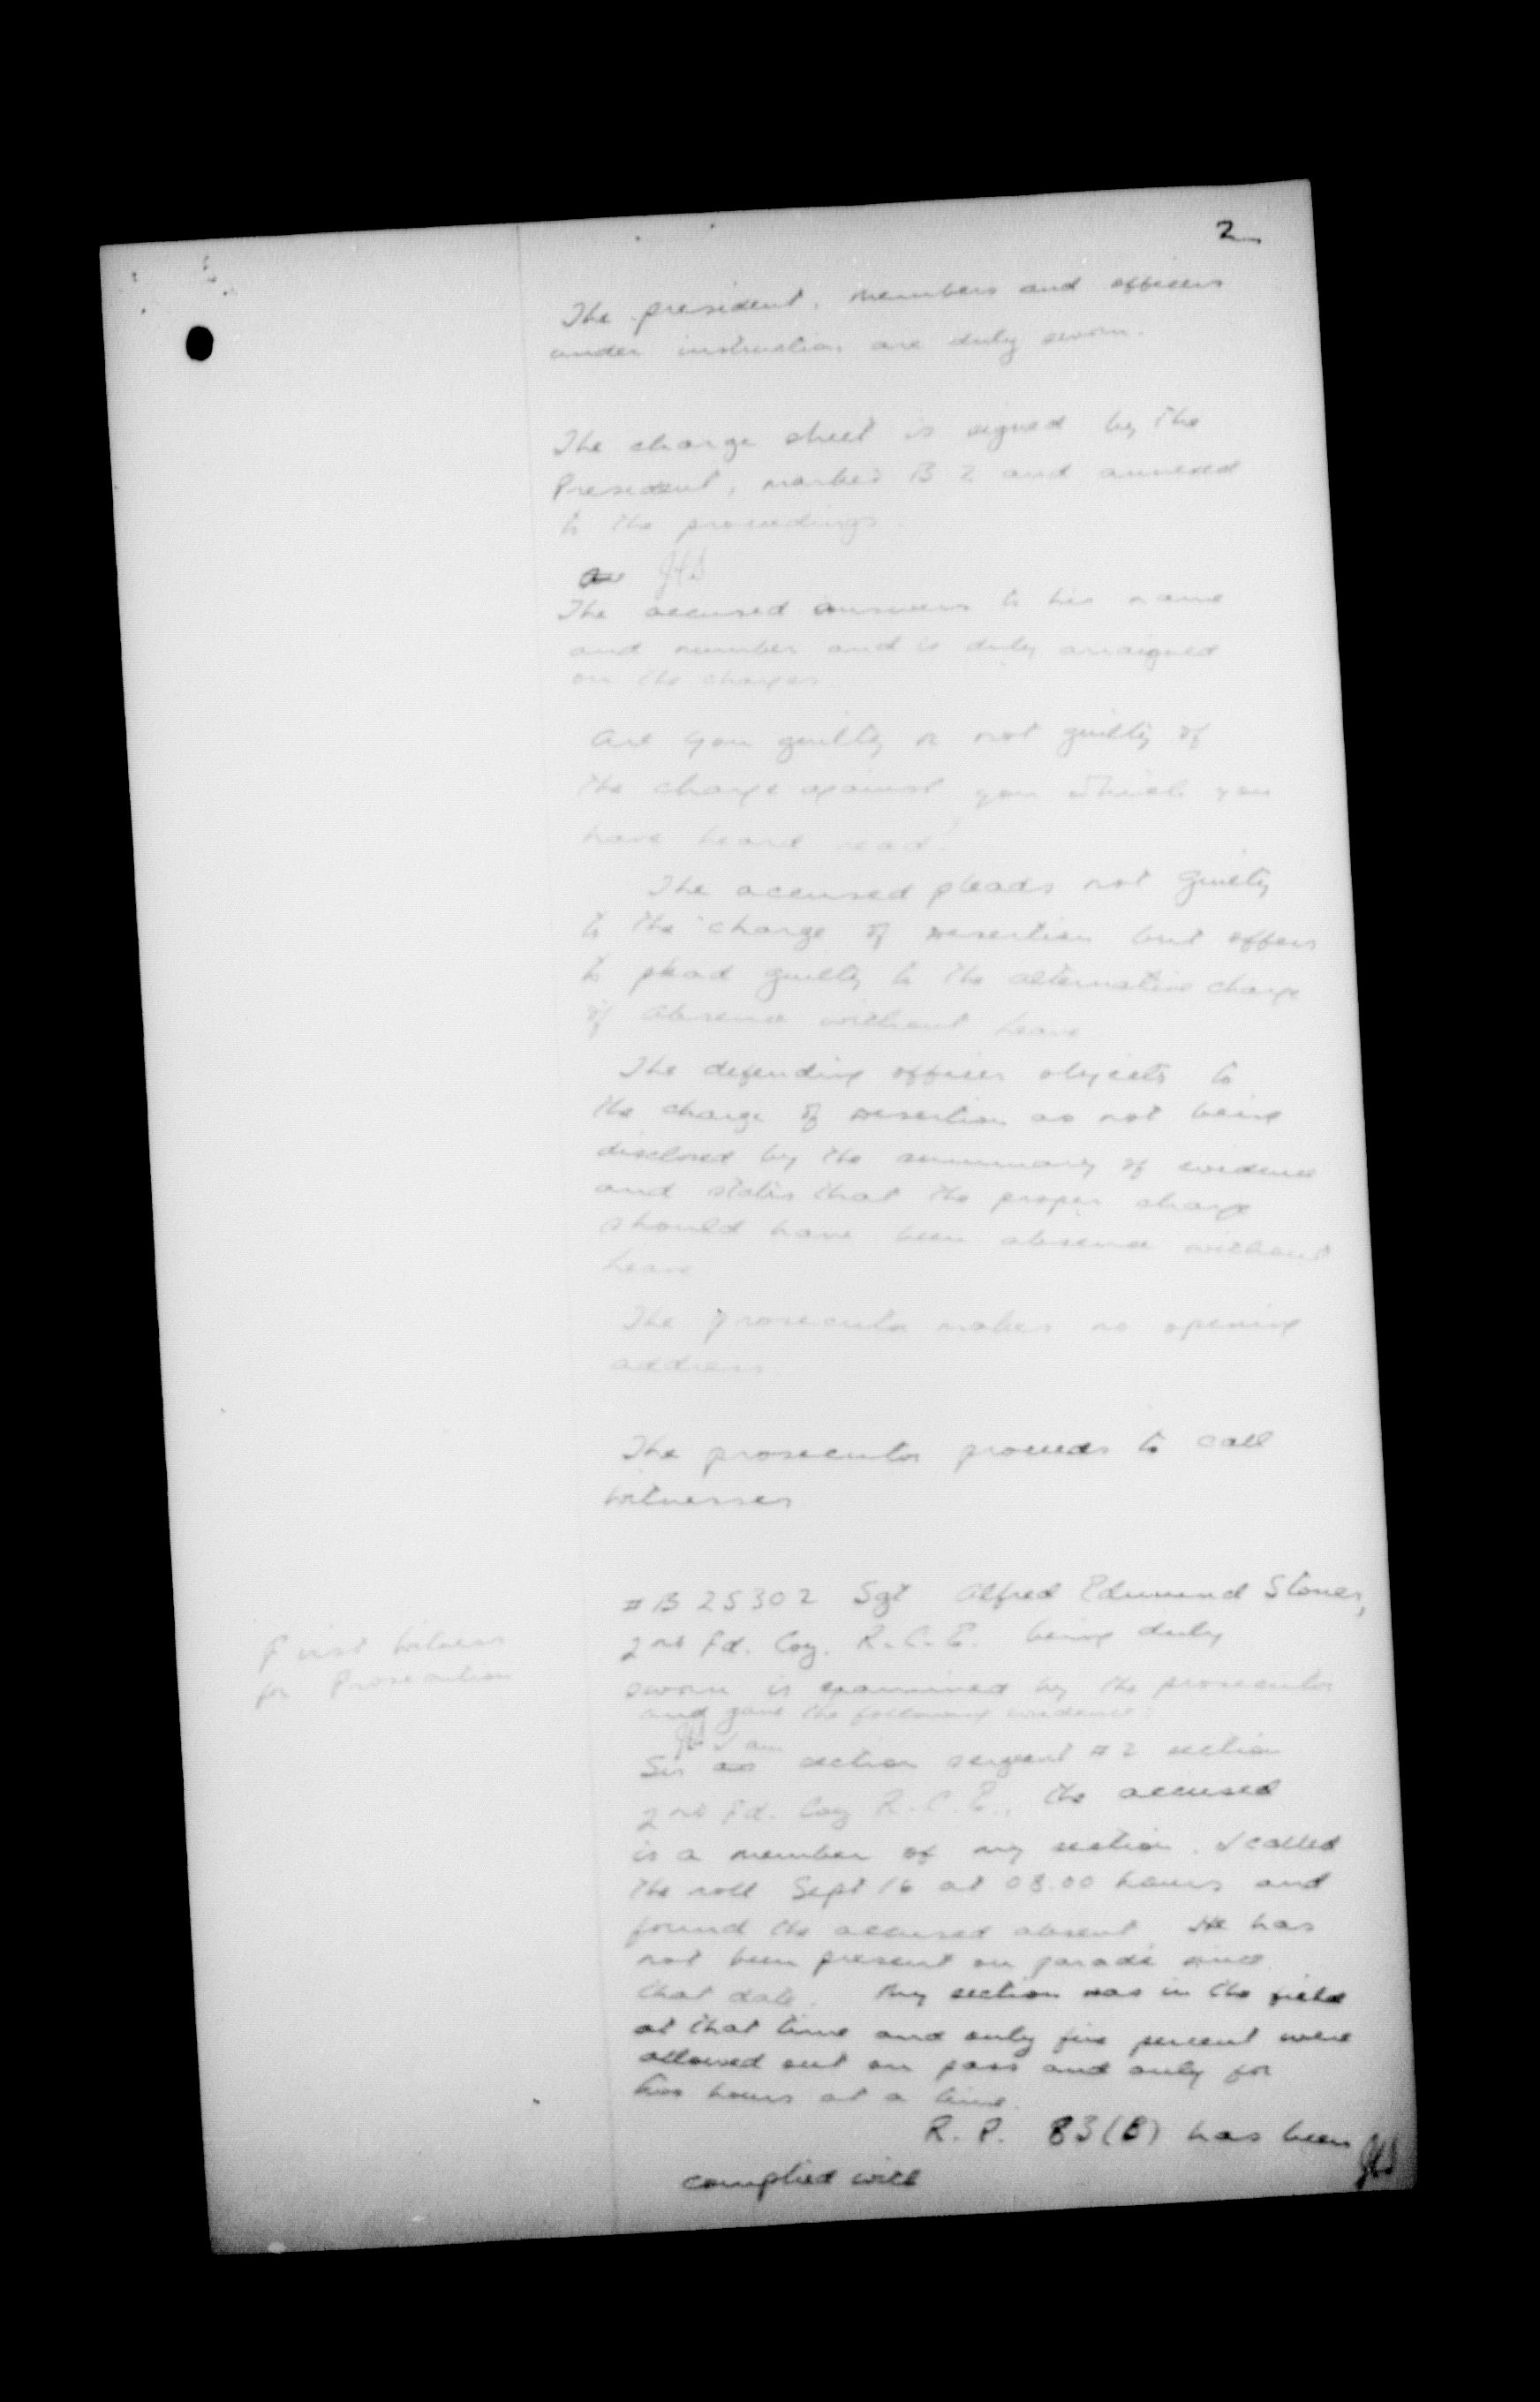 2
The president, members and officers
under instruction are duly sworn.
The charge sheet is signed by the
President, marked B 2 and annexed
to the proceedings.
JHS
The accused answers to his name
and number and is duly arraigned
on the charges
Are you guilty or not guilty of
the charge against you which you
have heard read?
The accused pleads not guilty
to the charge of desertion but offers
to plead guilty to the alternative charge
of absence without leave
The defending officer objects to
the charge of desertion as not being
disclosed by the summary of evidence
and states that the proper charge
should have been absence without
leave
The prosecutor makes no opening
address
The prosecutor proceeds to call
witnesses
First Witness
for Prosecution
# B 25302 Sgt Alfred Edmund Stones,
2nd Fd. Coy. R.C.E. being duly
sworn is examined by the prosecutor
and gave the following evidence:
I am
Sir as section sergeant # 2 section
2nd Fd. Coy R.C.E., the accused
is a member of my section. I called
the roll Sept 16 at 08.00 hours and
found the accused absent. He has
not been present on parade since
that date. My section was in the field
at that time and only five percent were
allowed out on pass and only for
two hours at a time.
R.P. 83(B) has been
complied with
JHS